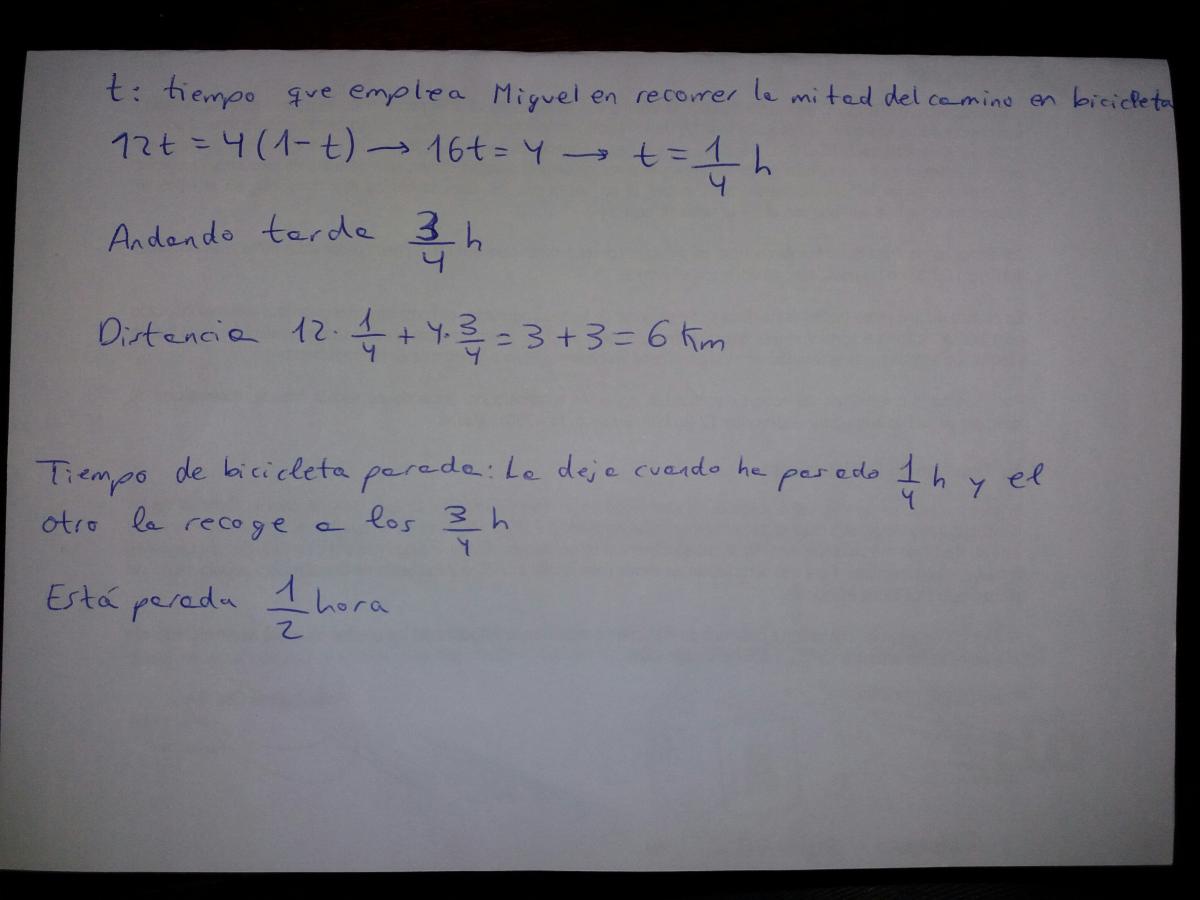 t: tiempo que emplea Miguel en recorrer la mitad del camino en bicicleta
12t = 4(1-t) → 16t = 4 → t = 1/4 h
Andando tarda 3/4 h
Distancia 12·1/4 + 4·3/4 = 3 + 3 = 6 Km
Tiempo de bicicleta parada: La deja cuando ha pasado 1/4 h y el
otro la recoge a los 3/4 h
Está parada 1/2 hora